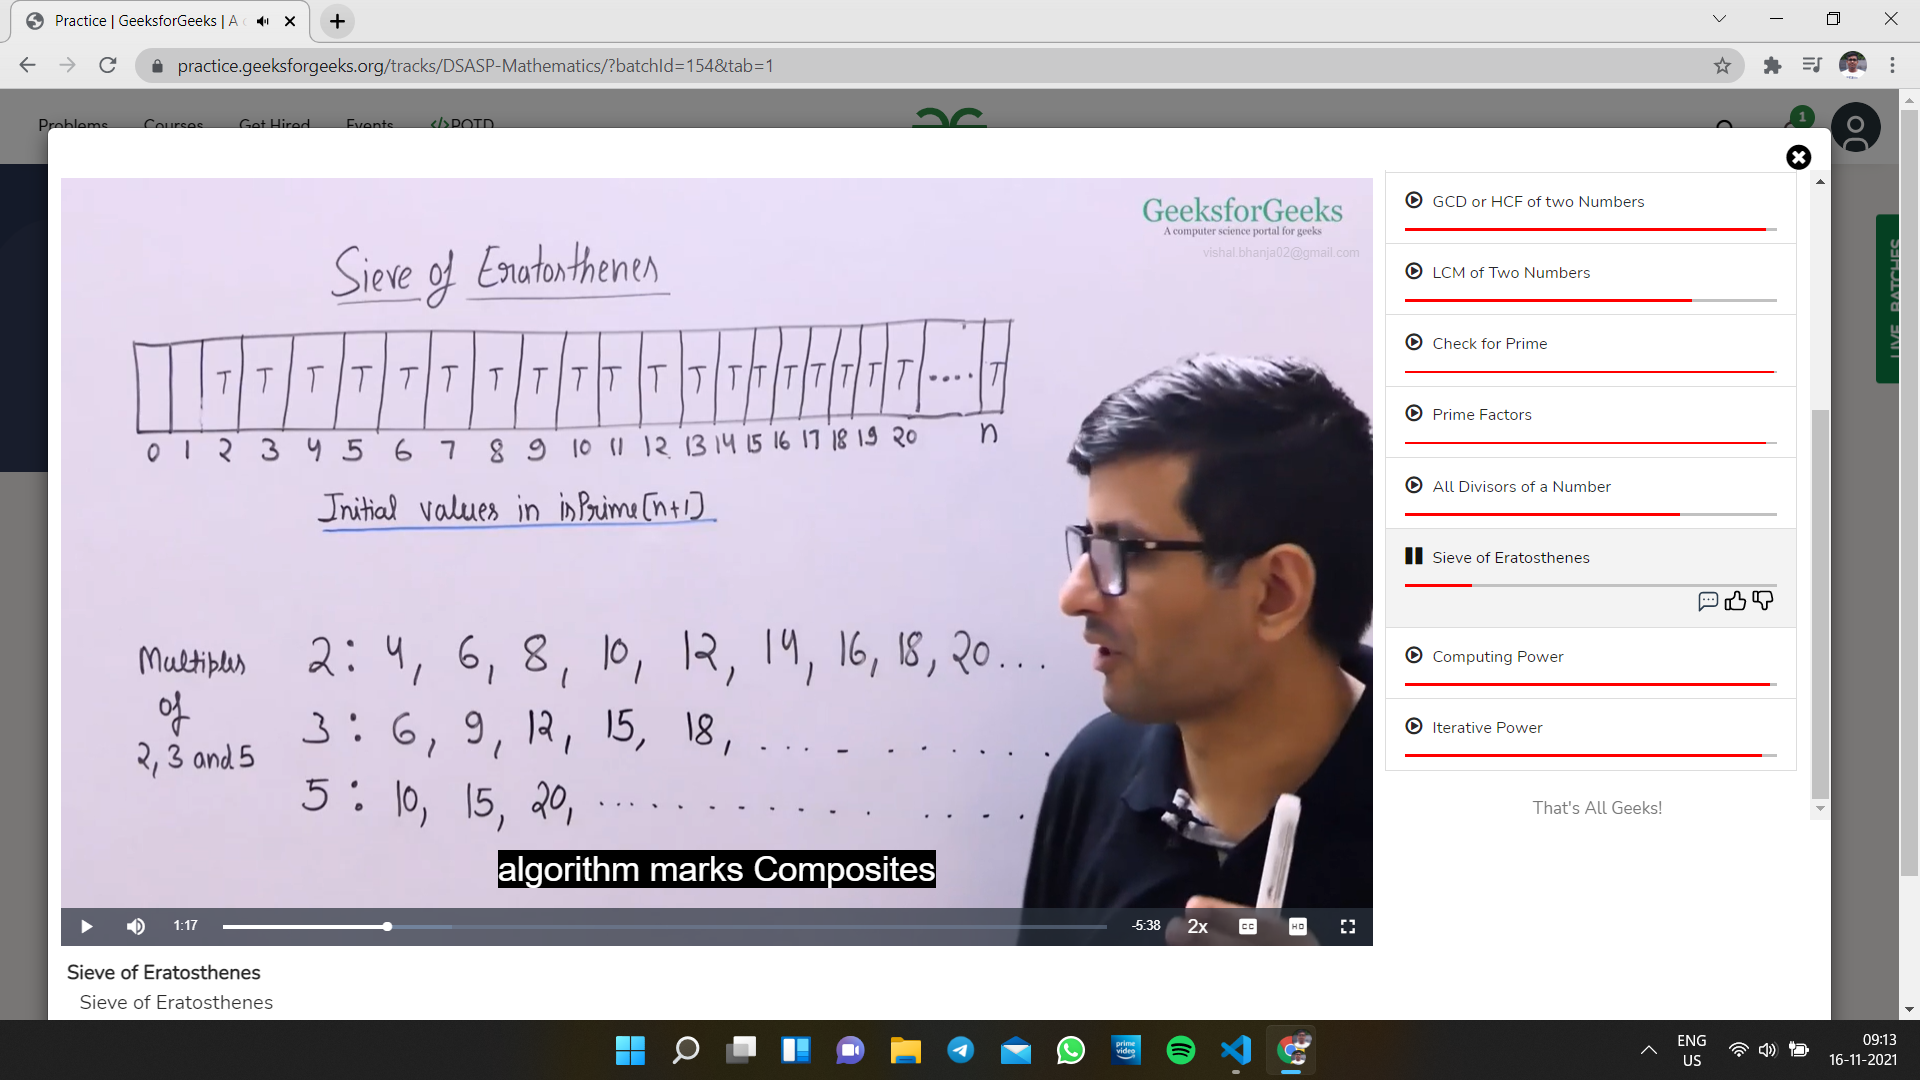 Practice | GeeksforGeeks | A
practice.geeksforgeeks.org/tracks/DSASP-Mathematics/?batchId=154&tab=1
Problems Courses Get Hired Events </>POTD
1
GeeksforGeeks
A computer science portal for geeks
vishal.bhanja02@gmail.com
Sieve of Eratosthenes
T T T T T T T T T T T T T T T T T T T .... T
0 1 2 3 4 5 6 7 8 9 10 11 12 13 14 15 16 17 18 19 20 n
Initial values in isPrime[n+1]
Multiples of 2, 3 and 5
2: 4, 6, 8, 10, 12, 14, 16, 18, 20...
3: 6, 9, 12, 15, 18, ...
5: 10, 15, 20, ...
algorithm marks Composites
1:17 -5:38 2x CC HD
Sieve of Eratosthenes
Sieve of Eratosthenes
GCD or HCF of two Numbers
LCM of Two Numbers
Check for Prime
Prime Factors
All Divisors of a Number
Sieve of Eratosthenes
Computing Power
Iterative Power
That's All Geeks!
LIVE BATCHES
prime video
ENG
US
09:13
16-11-2021